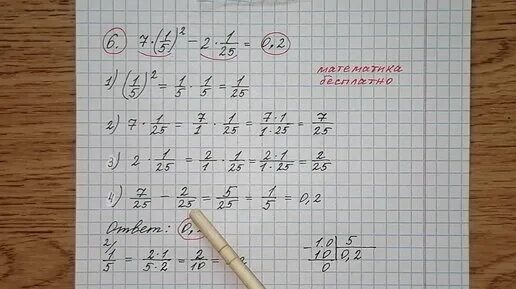 6. 7·(1/5)² − 2·1/25 = 0,2
математика
бесплатно
1) (1/5)² = 1/5 · 1/5 = 1/25
2) 7 · 1/25 = 7/1 · 1/25 = 7·1/1·25 = 7/25
3) 2 · 1/25 = 2/1 · 1/25 = 2·1/1·25 = 2/25
4) 7/25 − 2/25 = 5/25 = 1/5 = 0,2
Ответ: 0,
2/ 1/5 = 2·1/5·2 = 2/10 =
− 1.0 | 5
10 | 0,2
0